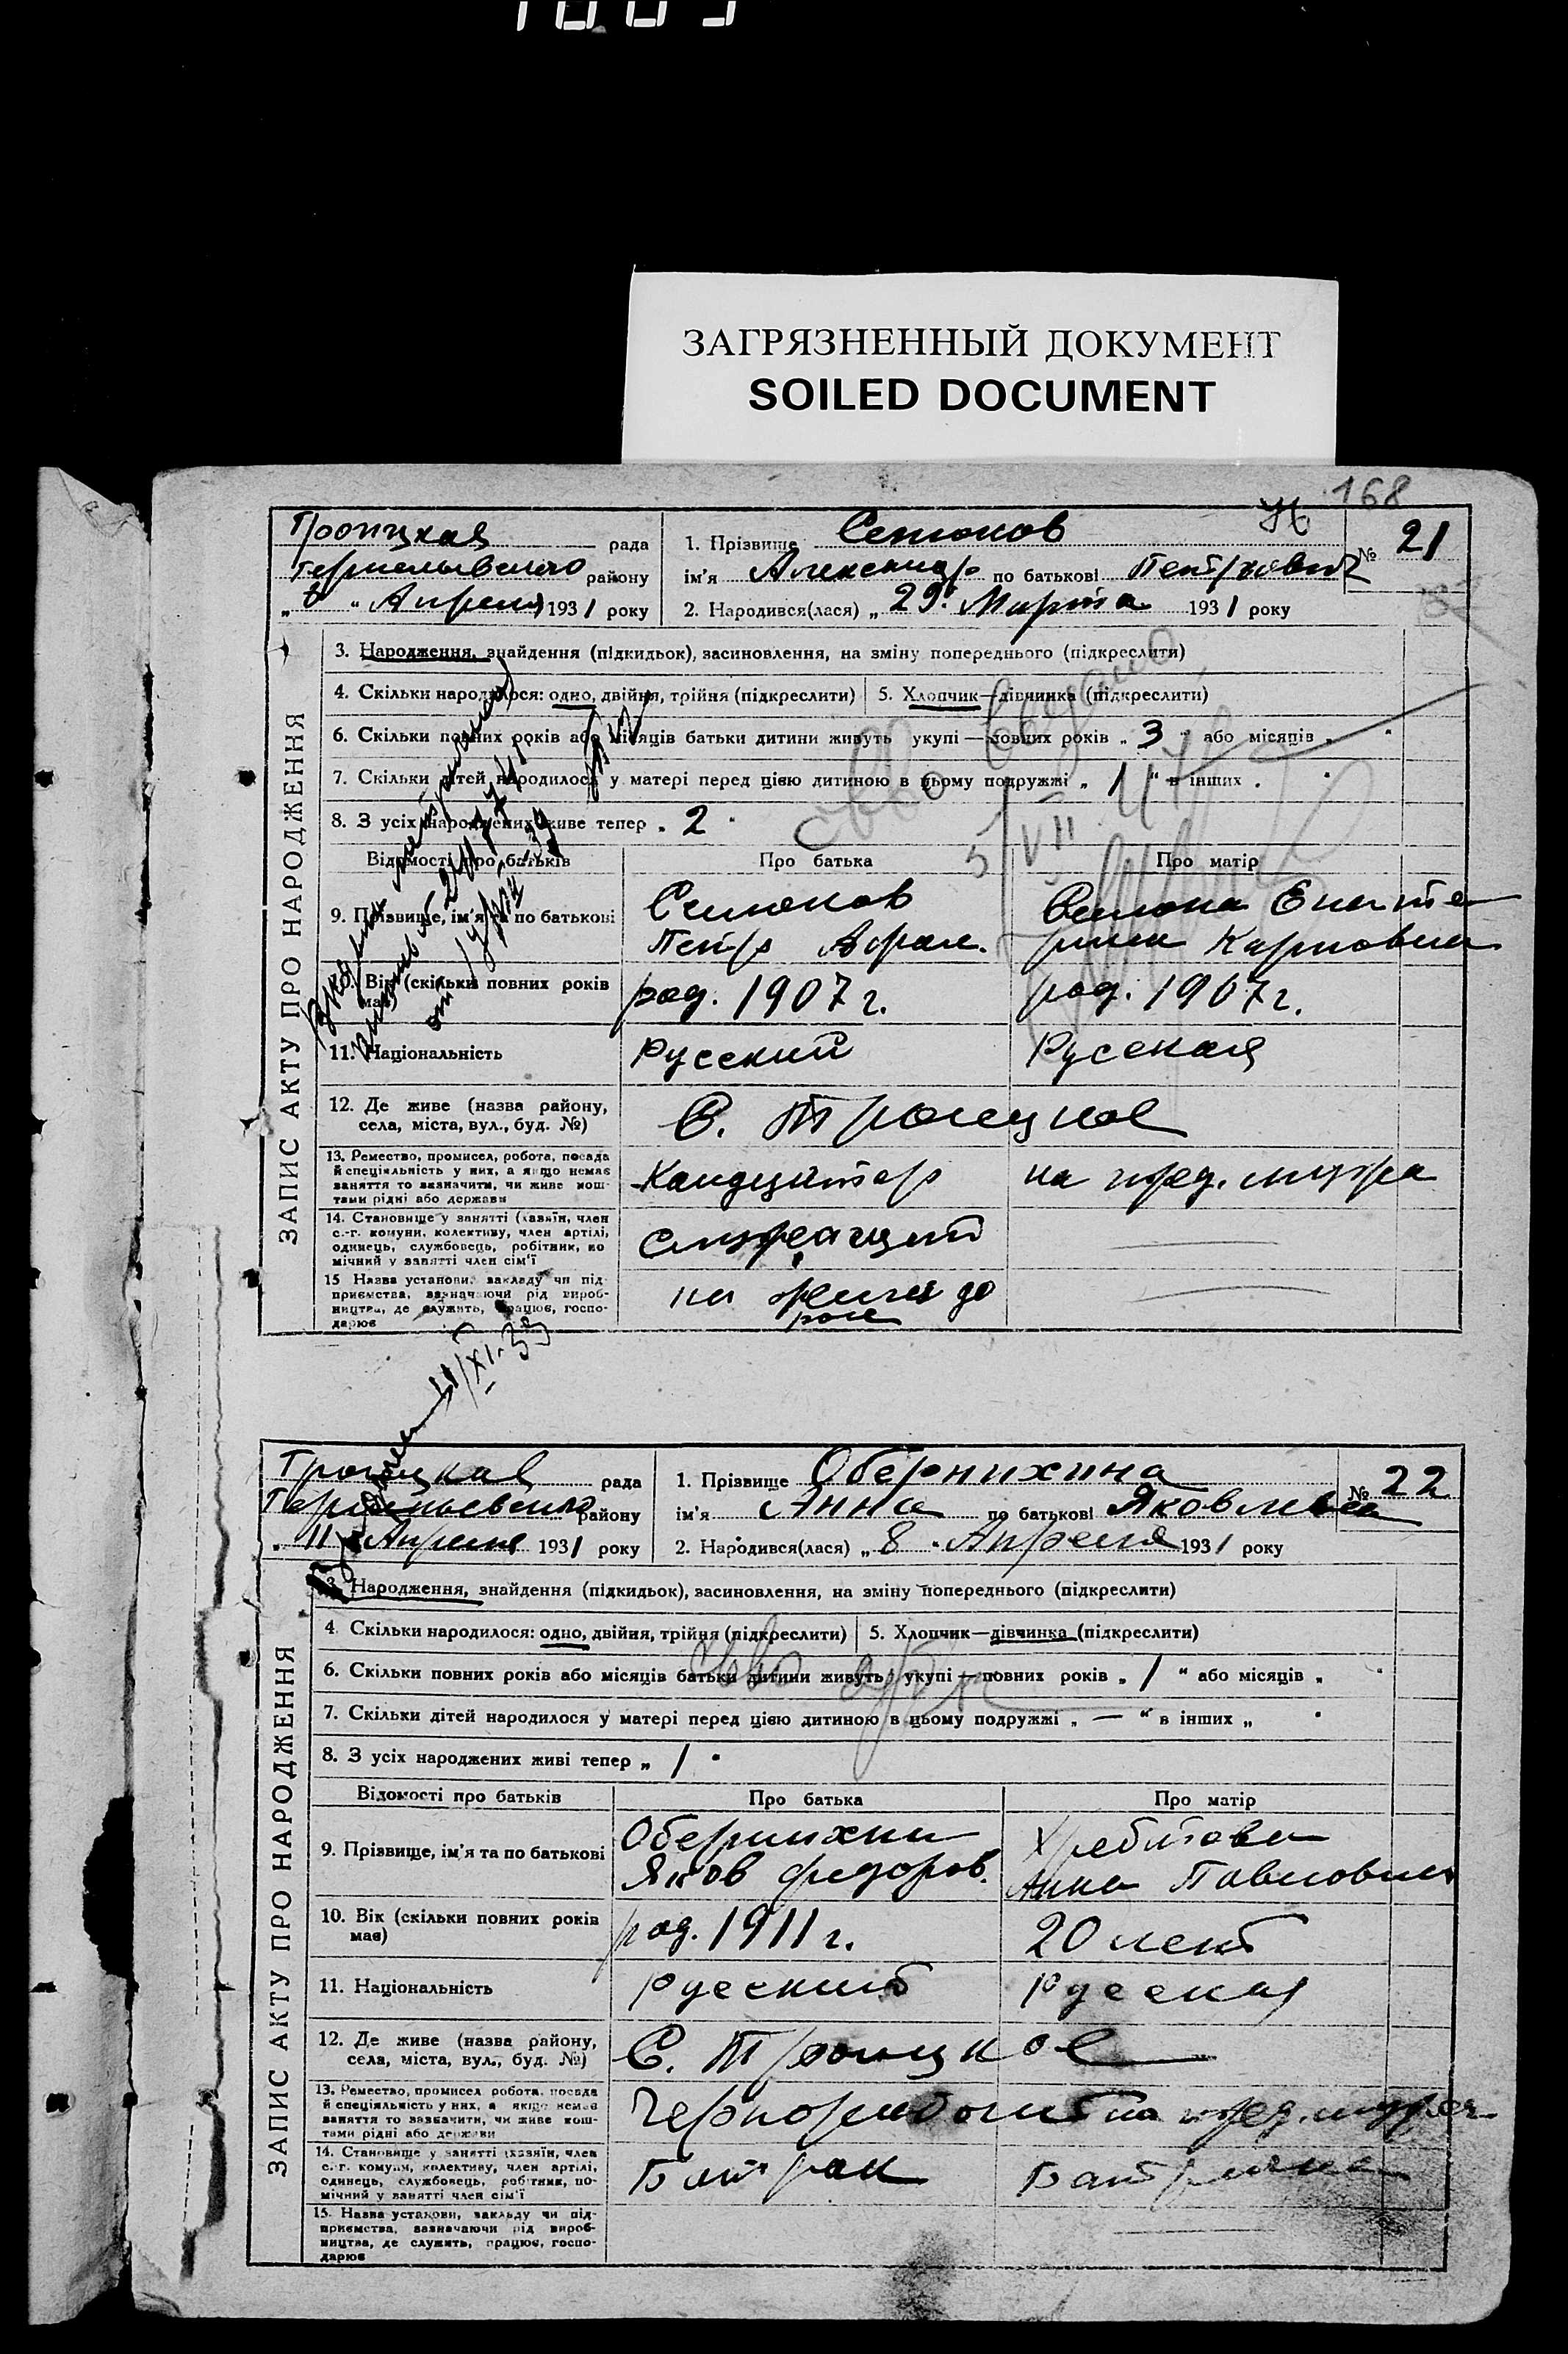 ЗАГРЯЗНЕННЫЙ ДОКУМЕНТ
SOILED DOCUMENT
168
Троицкая рада
району
Апреля 1931 року
1. Прізвище
№ 21
ім'я Александр по батькові Петрович
2. Народився(лася) „29. Марта 1931 року
ЗАПИС АКТУ ПРО НАРОДЖЕННЯ
3. Народження, знайдення (підкидьок), засиновлення, на зміну попереднього (підкреслити)
4. Скільки народилося: одно, двійня, трійня (підкреслити) 5. Хлопчик—дівчинка (підкреслити)
6. Скільки повних років або місяців батьки дитини живуть укупі — повних років „ 3 " або місяців „
7. Скільки дітей народилося у матері перед цією дитиною в цьому подружжі „ 1 " в інших
8. З усіх народжених живе тепер „ 2
Відомості про батьків Про батька Про матір
9. Прізвище, ім'я та по батькові
Петр Карповна
10. Вік (скільки повних років має) род. 1907 г. род. 1907 г.
11. Національність Русский Русская
12. Де живе (назва району, села, міста, вул., буд. №) С. Троицкое
13. Ремество, промисел, робота, посада
й спеціяльність у них, а якщо немає
заняття то вазначити, чи живе кош-
тами рідні або держави
Кондуктор на
14. Становище у занятті (хазяїн, член
с.-г. комуни, колективу, член артілі,
одинець, службовець, робітник, по
мічний у занятті член сім'ї
15 Назва установи, закладу чи під
приємства, вазначаючи рід вироб-
ництва, де служить, працює, госпо-
дарює
Троицкая рада
району
„ 11 " Апреля 1931 року
1. Прізвище Обернихина
№ 22
ім'я Анна по батькові Яковлевна
2. Народився(лася) „ 8 " Апреля 1931 року
ЗАПИС АКТУ ПРО НАРОДЖЕННЯ
3. Народження, знайдення (підкидьок), засиновлення, на зміну попереднього (підкреслити)
4. Скільки народилося: одно, двійня, трійня (підкреслити) 5. Хлопчик—дівчинка (підкреслити)
6. Скільки повних років або місяців батьки дитини живуть укупі — повних років „ 1 " або місяців „
7. Скільки дітей народилося у матері перед цією дитиною в цьому подружжі „ — " в інших „
8. З усіх народжених живі тепер „ 1
Відомості про батьків Про батька Про матір
9. Прізвище, ім'я та по батькові
Обернихин Хребтова
Яков Федоров. Анна Павловна
10. Вік (скільки повних років має) род. 1911 г. 20 лет
11. Національність Русский Русская
12. Де живе (назва району, села, міста, вул., буд. №) С. Троицкое
13. Ремество, промисел робота, посада
й спеціяльність у них, а якщо немає
заняття то вазначити, чи живе кош-
тами рідні або держави
Чернорабочий на
14. Становище у занятті (хазяїн, член
с.-г. комуни, колективу, член артілі,
одинець, службовець, робітник, по-
мічний у занятті член сім'ї
Батрак Батрачка
15. Назва установи, закладу чи під-
приємства, вазначаючи рід вироб-
ництва, де служить, працює, госпо-
дарює